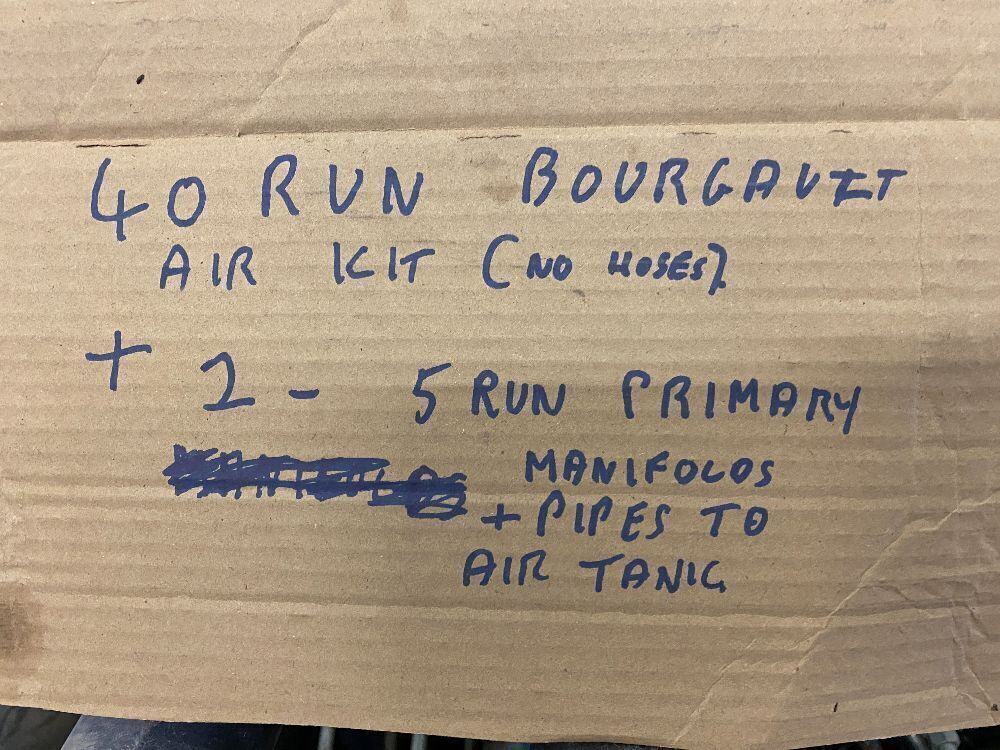 40 RUN BOURGAULT
AIR KIT (NO HOSES).
+ 2 - 5 RUN PRIMARY
MANIFOLDS
+ PIPES TO
AIR TANK